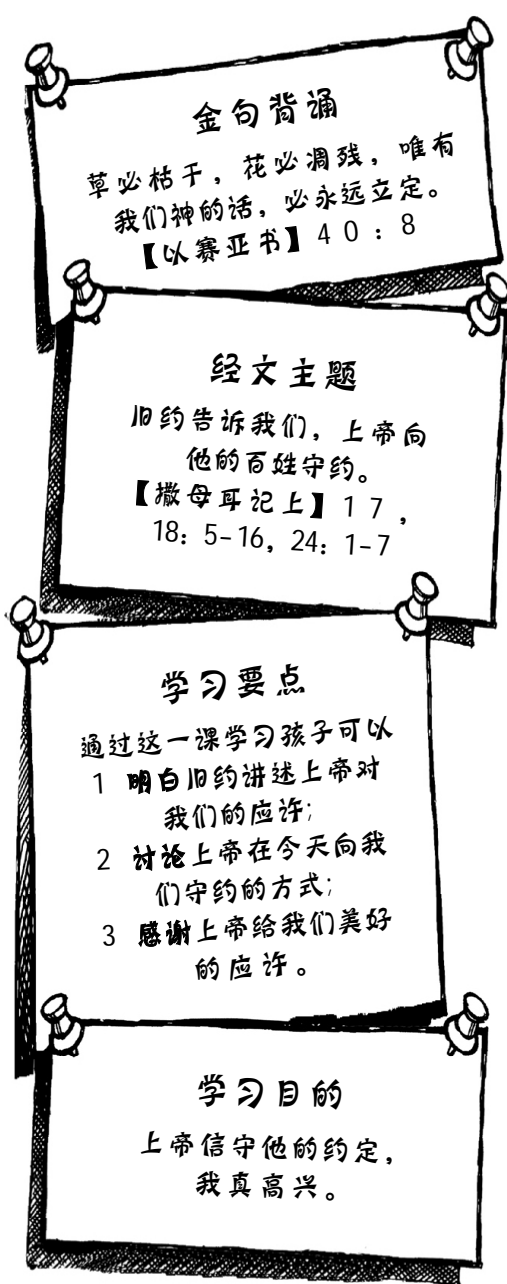 金句背诵
草必枯干，花必凋残，唯有
我们神的话，必永远立定。
【以赛亚书】40：8
经文主题
旧约告诉我们，上帝向
他的百姓守约。
【撒母耳记上】17，
18：5-16，24：1-7
学习要点
通过这一课学习孩子可以
1 明白旧约讲述上帝对
我们的应许；
2 讨论上帝在今天向我
们守约的方式；
3 感谢上帝给我们美好
的应许。
学习目的
上帝信守他的约定，
我真高兴。